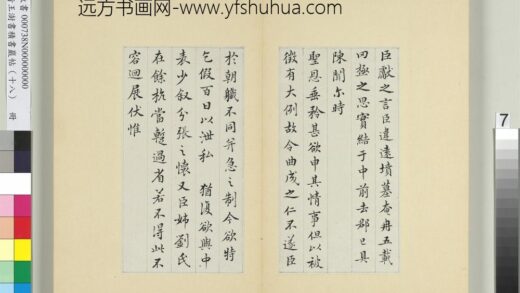 远方书画网-www.yfshuhua.com
臣獻之言臣違遠墳墓奄冉五載
罔極之思實結于中前去郡已具
陳聞尔時
聖恩垂矜甚欲申其情事但以被
徵有大例故令曲成之仁不遂臣
於朝職不同 急之制今欲特
乞假百日以泄私 猶復欲與中
表少叙分張之懷又臣姉劉氏
在餘杭當蹔過省若不得此不
容迴展伏惟
000738N00000000
王澍書積書巖帖（十八） 冊
7